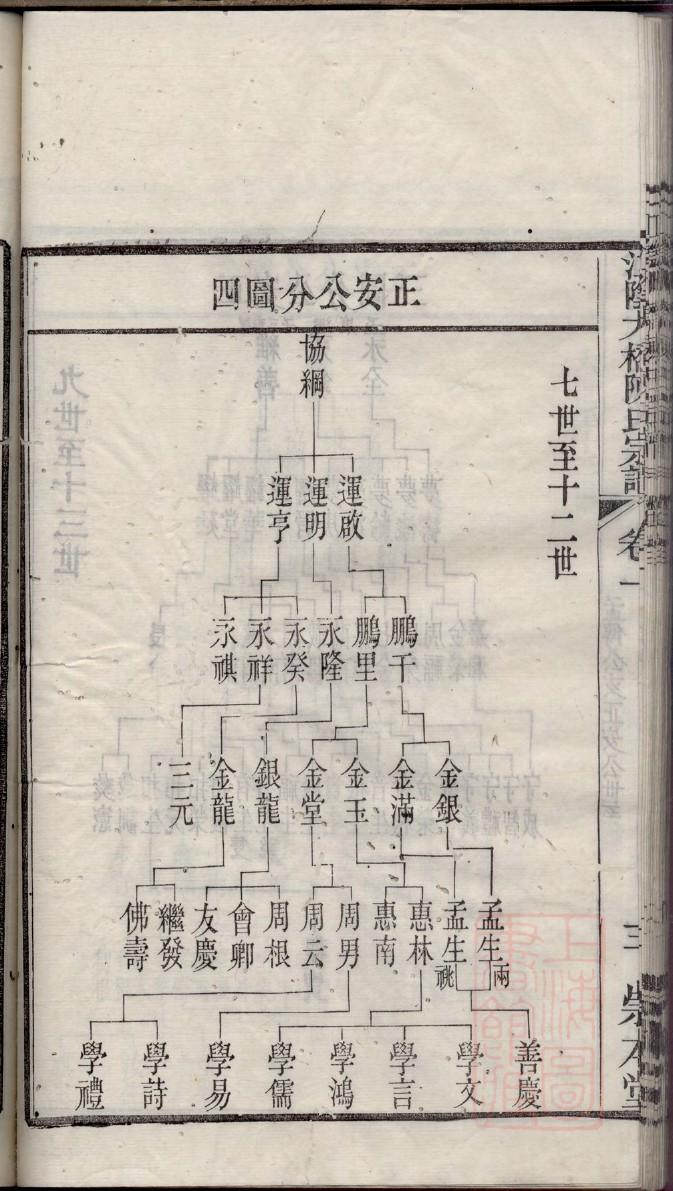 正安公分圖四
七世至十二世
協綱
運啟 運明 運亨
鵬千 鵬里 永隆 永癸 永祥 永祺
金銀 金滿 金玉 金堂 銀龍 金龍 三元
孟生 孟生 惠林 惠南 周男 周云 周根 會卿 友慶 繼發 佛壽
兩 祧
善慶 學文 學言 學鴻 學儒 學易 學詩 學禮
大橋陳氏宗譜 卷一
三